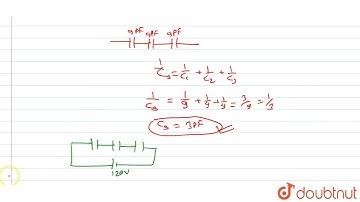 9PF 9PF 9PF
1/Cs = 1/C1 + 1/C2 + 1/C3
1/Cs = 1/9 + 1/9 + 1/9 = 3/9 = 1/3
Cs = 3PF
120V
doubtnut